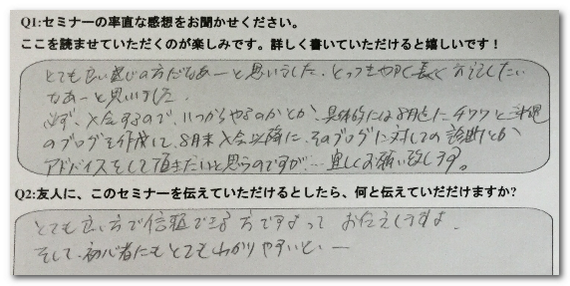 Q1:セミナーの率直な感想をお聞かせください。
ここを読ませていただくのが楽しみです。詳しく書いていただけると嬉しいです！
とても良い感じの方だなあーと思いました。とっつきやすく長くお话したい
なあーと思いました。
必ず、入会するので、いつからやるのかとか、具体的には8月迄に
のブログを作成して、8月末入会以降に、そのブログに対しての診断とか
アドバイスをして頂きたいと思うのですが… 宜しくお願い致します。
Q2:友人に、このセミナーを伝えていただけるとしたら、何と伝えていだだけますか?
とても良い方で信頼できる方ですよって お伝えしますよ。
そして、初心者にもとてもわかりやすいと、ー